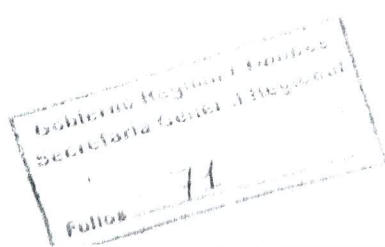 Gobierno Regional Tumbes
Secretaria General Regional
Folios 71